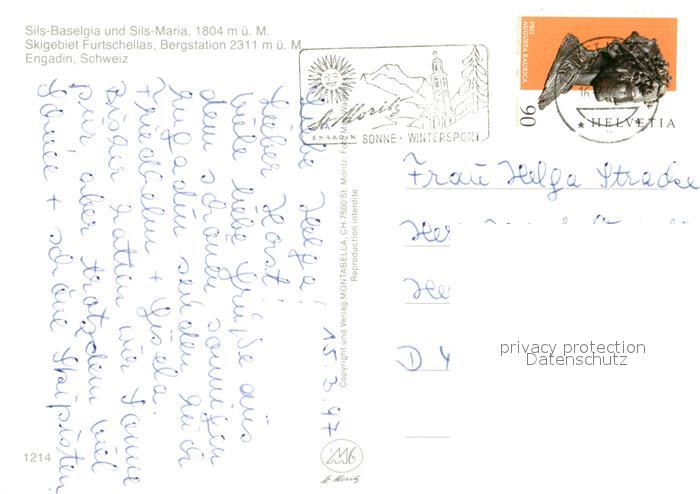 Sils-Baselgia und Sils-Maria, 1804 m ü. M.
Skigebiet Furtschellas, Bergstation 2311 m ü. M.
Engadin, Schweiz
St. Moritz
ENGADIN SONNE · WINTERSPORT
PRO
AUGUSTA RAURICA
90
HELVETIA
15.3.97
Liebe Helga!
Lieber Horst!
Viele liebe Grüße aus
dem schönen sonnigen
Engadin senden Euch
Friedhelm + Gisela.
Bisher hatten wir Sonne
pur, aber trotzdem viel
+ schöne Skipisten
Copyright und Verlag MONTABELLA, CH-7500 St. Moritz.
Reproduction interdite
Frau Helga Stracke
D
privacy protection
Datenschutz
1214
St. Moritz